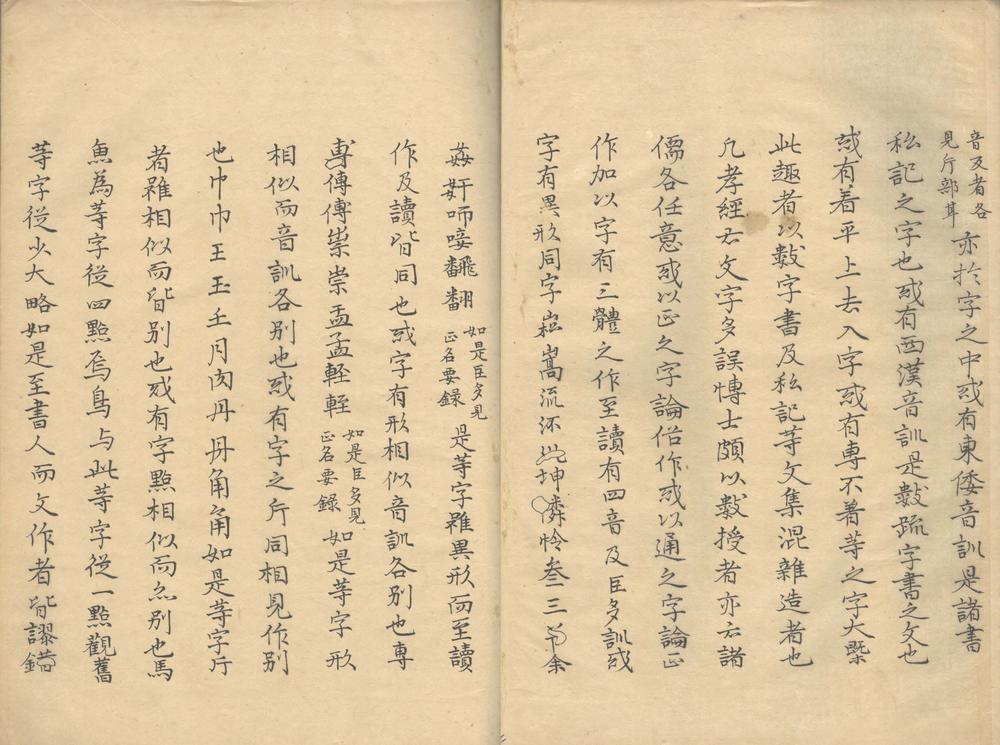 音及者各見片部耳亦於字之中或有東倭音訓是諸書
私記之字也或有西漢音訓是數疏字書之文也
或有着平上去入字或有專不著等之字大槩
此趣者以數字書及私記等文集混雜造者也
凡孝經云文字多誤博士頗以數授者亦云諸
儒各任意或以正之字論俗作或以通之字論正
作加以字有三體之作至讀有四音及巨多訓或
字有異形同字崧嵩流㳅坤憐怜叁三余
姦奸啼飜翻如是巨多見正名要錄是等字雖異形而至讀
作及讀皆同也或字有形相似音訓各別也專
尃傳傅崇祟盂孟輕輊如是巨多見正名要錄如是等字形
相似而音訓各別也或有字之片同相見作別
也巾巾王玉壬月肉丹丹角角如是等字片
者雖相似而皆別也或有字點相似而亦別也馬
魚為等字從四點焉鳥与此等字從一點觀舊
等字從少大略如是至書人而文作者皆謬錯